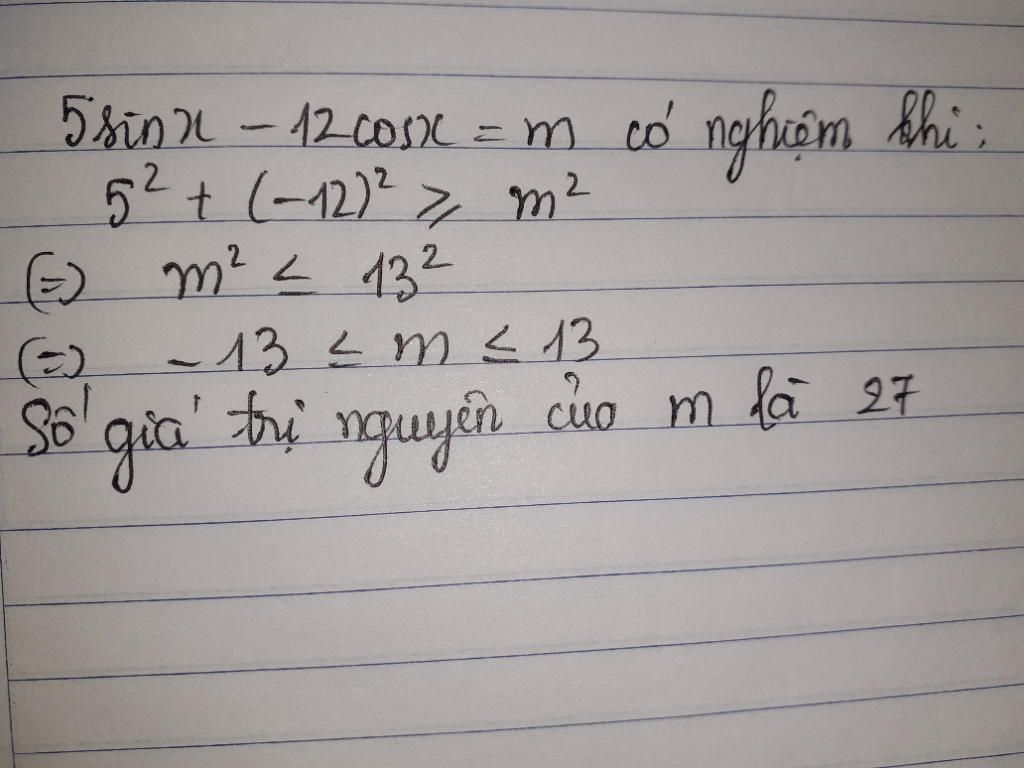 5sinx - 12cosx = m có nghiệm khi:
5² + (-12)² ≥ m²
(=) m² ≤ 13²
(=) -13 ≤ m ≤ 13
Số giá trị nguyên của m là 27